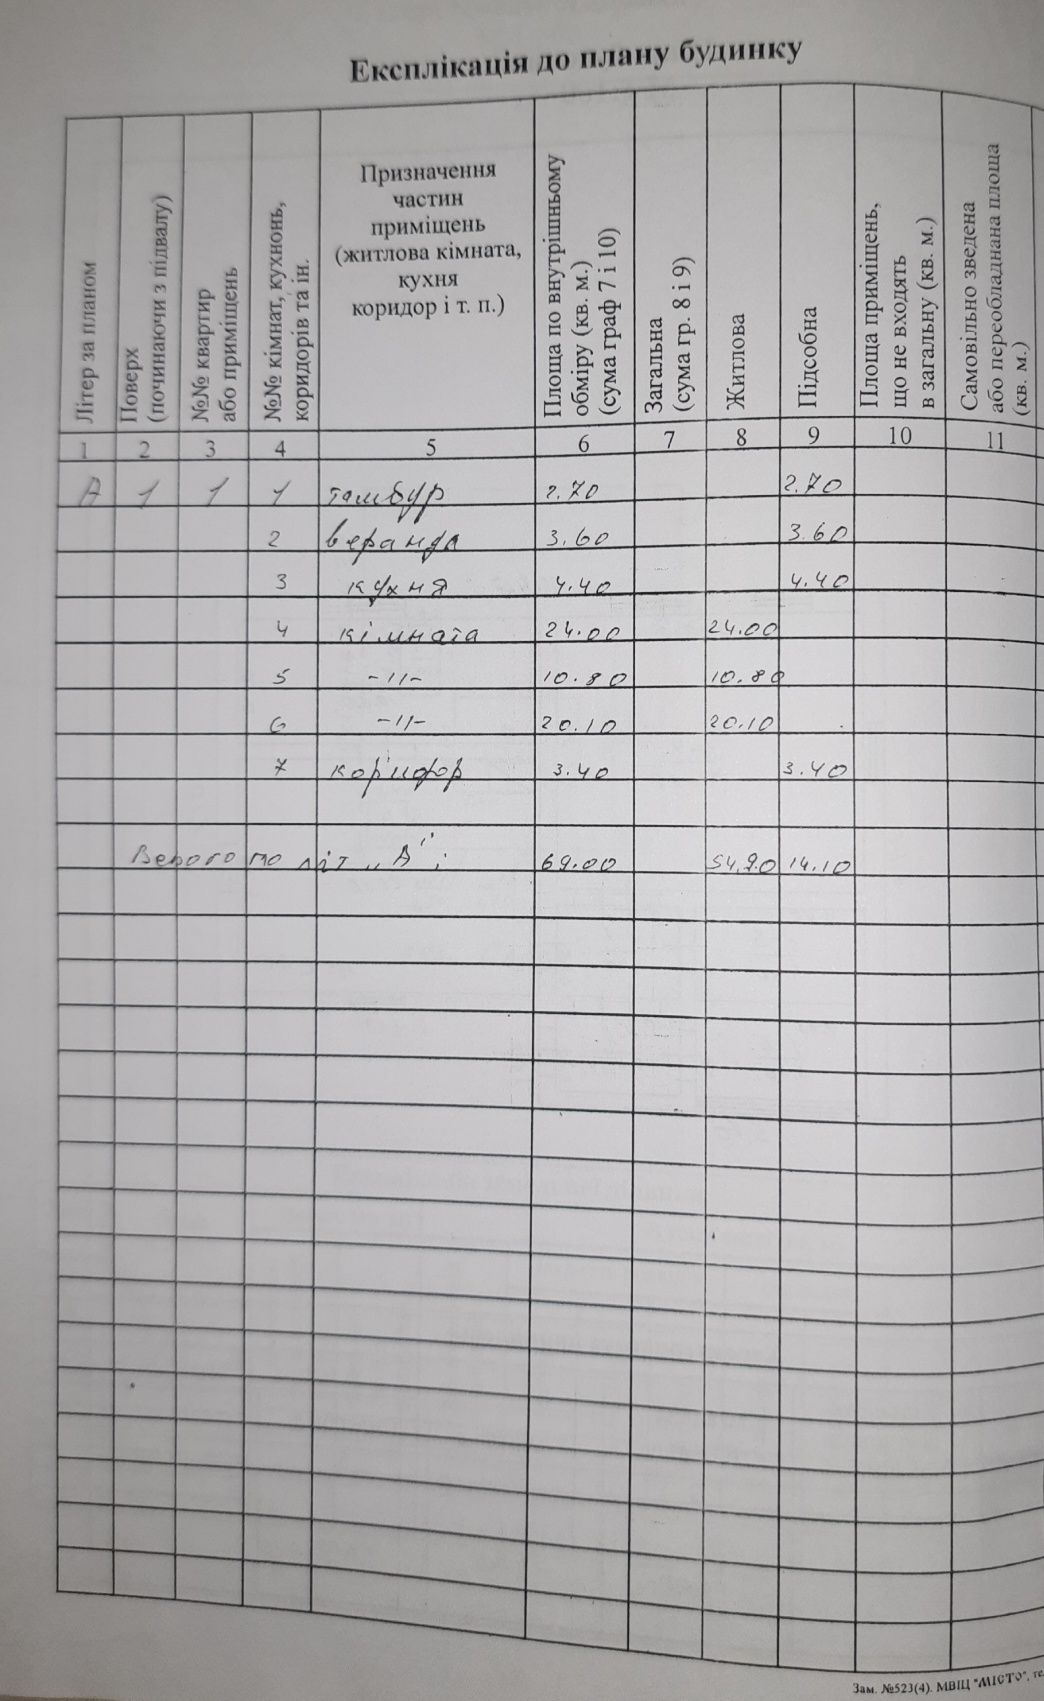 Експлікація до плану будинку
Літер за планом
Поверх
(починаючи з підвалу)
№№ квартир
або приміщень
№№ кімнат, кухнонь,
коридорів та ін.
Призначення
частин
приміщень
(житлова кімната,
кухня
коридор і т. п.)
Площа по внутрішньому
обміру (кв. м.)
(сума граф 7 і 10)
Загальна
(сума гр. 8 і 9)
Житлова
Підсобна
Площа приміщень,
що не входять
в загальну (кв. м.)
Самовільно зведена
або переобладнана площа
(кв. м.)
1 2 3 4 5 6 7 8 9 10 11
А 1 1 1 тамбур 2.70 2.70
2 веранда 3.60 3.60
3 кухня 4.40 4.40
4 кімната 24.00 24.00
5 -//- 10.80 10.80
6 -//- 20.10 20.10
7 коридор 3.40 3.40
Всього по літ „А": 69.00 54.90 14.10
Зам. №523(4). МВІЦ "МІСТО", те